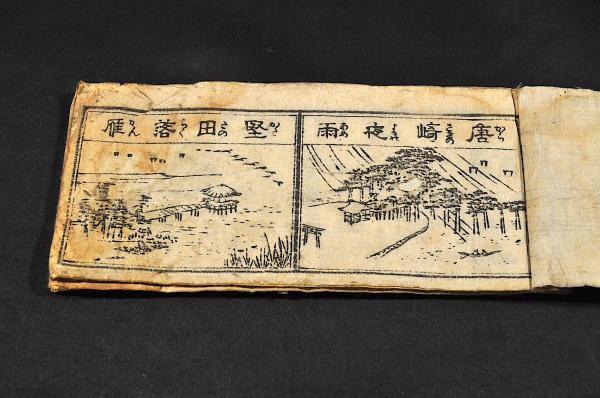 唐崎夜雨
堅田落雁